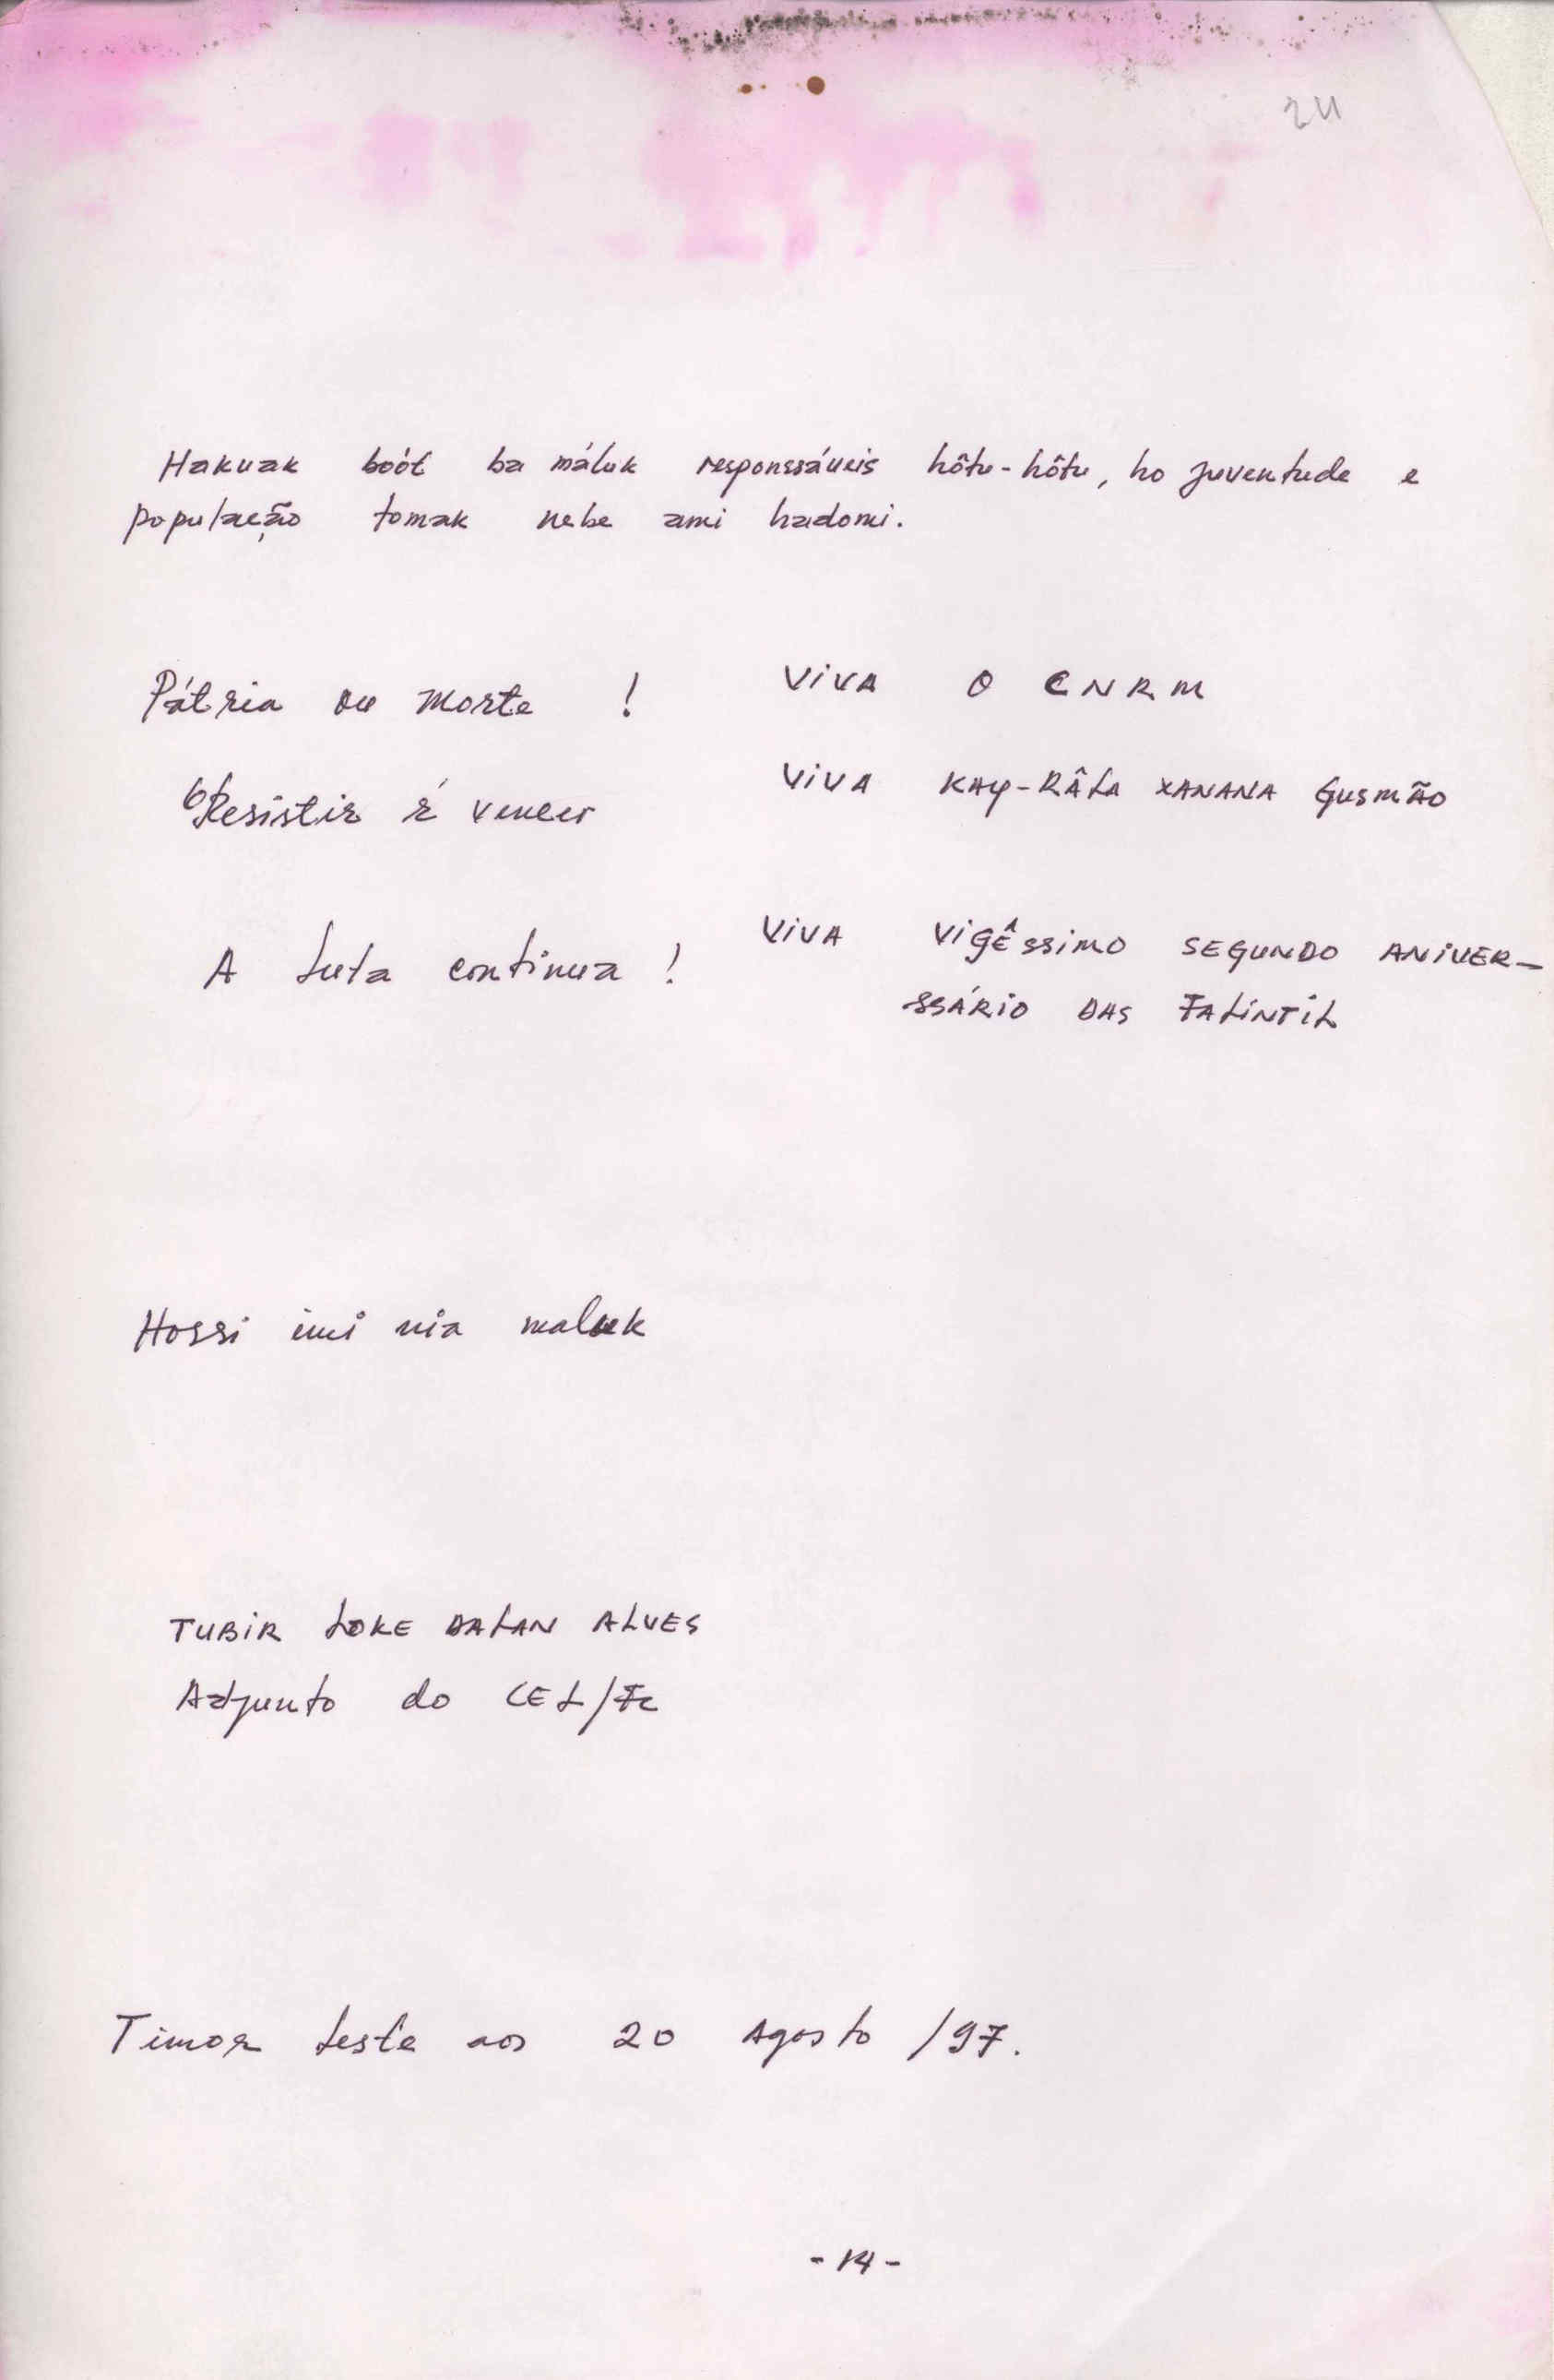 24
Hakuak boót ba máluk responssáveis hôtu-hôtu, ho juventude e
população tomak nebe ami hadomi.
Pátria ou Morte !
VIVA O CNRM
Resistir é vencer
VIVA KAY-RÂLA XANANA GUSMÃO
A Luta continua !
VIVA VIGÊSSIMO SEGUNDO ANIVER-
SSÁRIO DAS FALINTIL
Hossi imi nia maluk
TUBIR LOKE DALAN ALVES
Adjunto do CEL/Fc
Timor Leste aos 20 Agosto /97.
- 14 -